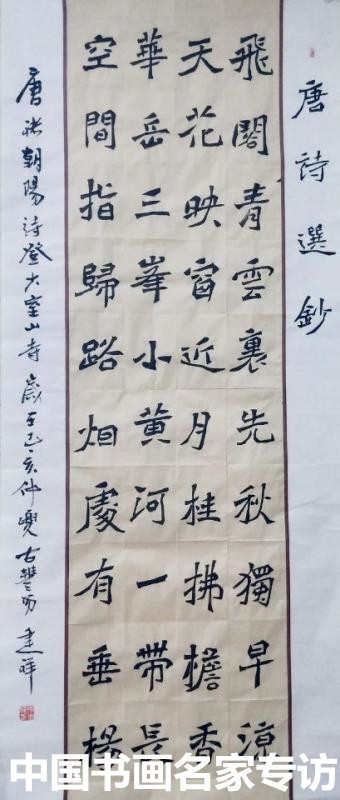 唐詩選鈔
飛閣青雲裏先秋獨早涼
天花映窗近月桂拂檐香
華岳三峯小黃河一帶長
空間指歸路烟處有垂楊
唐朝陽詩登室山寺歲在己亥仲古豐建祥
中国书画名家专访